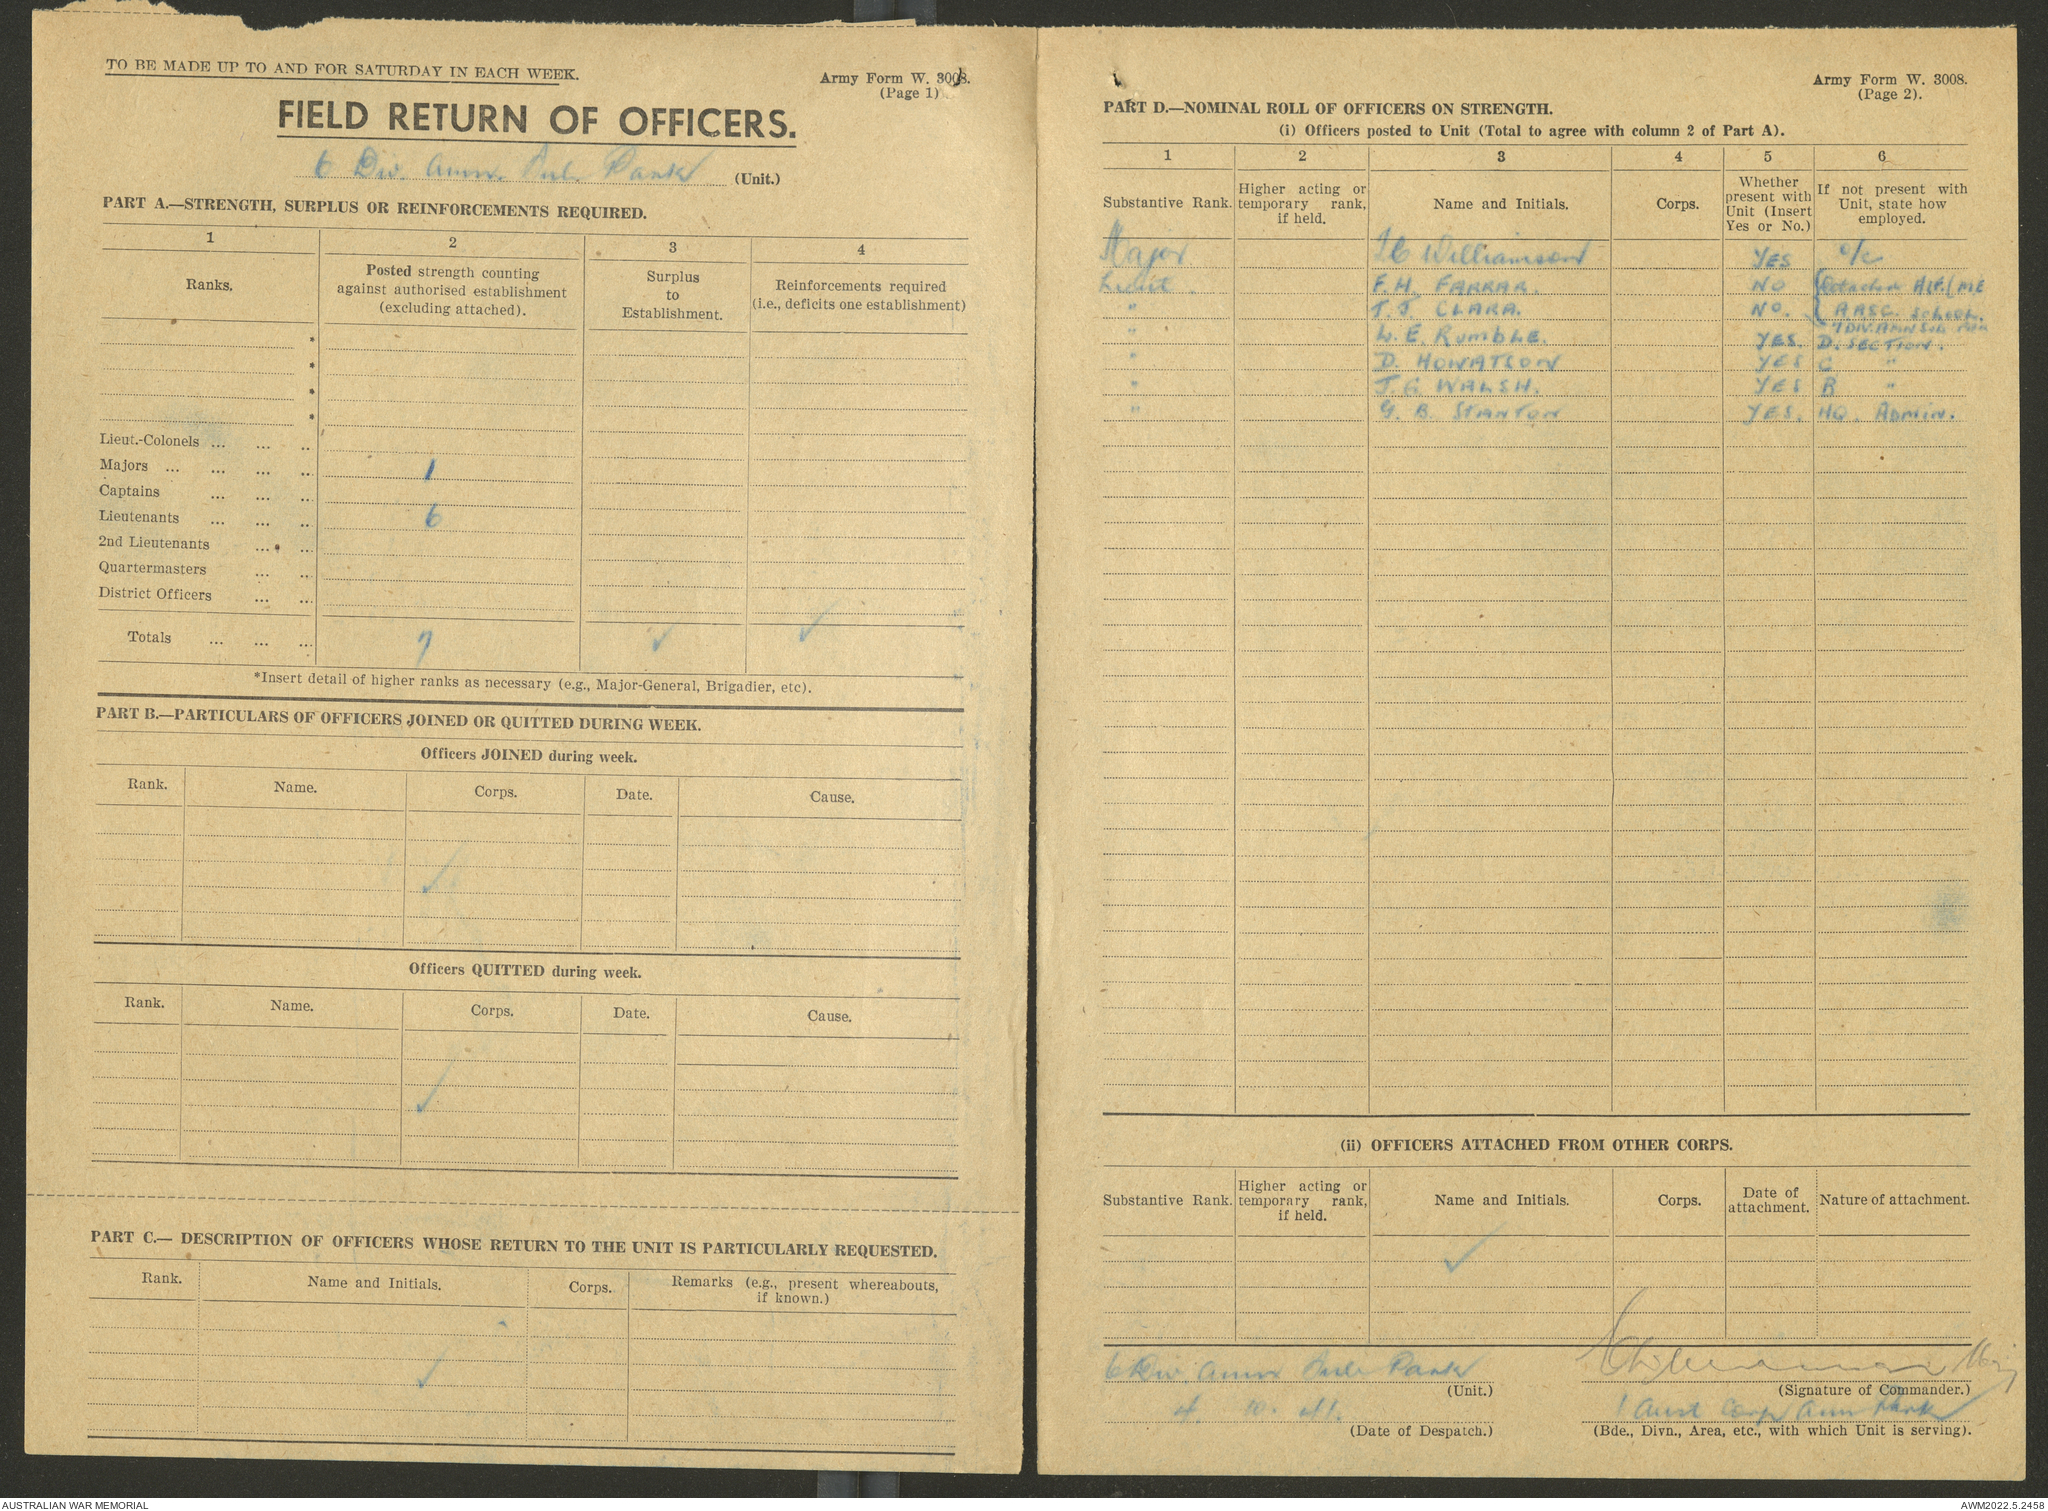 TO BE MADE UP TO AND FOR SATURDAY IN EACH WEEK.
Army Form W. 3008.
(Page 1)
FIELD RETURN OF OFFICERS.
6 Div. Amn. Sub. Park (Unit.)
PART A.—STRENGTH, SURPLUS OR REINFORCEMENTS REQUIRED.
1 2 3 4
Ranks. Posted strength counting against authorised establishment (excluding attached). Surplus to Establishment. Reinforcements required (i.e., deficits one establishment)
*
*
*
*
Lieut.-Colonels ... ... ...
Majors ... ... ... ... 1
Captains ... ... ...
Lieutenants ... ... ... 6
2nd Lieutenants ... ...
Quartermasters ... ...
District Officers ... ...
Totals ... ... ... 7 ✓ ✓
*Insert detail of higher ranks as necessary (e.g., Major-General, Brigadier, etc).
PART B.—PARTICULARS OF OFFICERS JOINED OR QUITTED DURING WEEK.
Officers JOINED during week.
Rank. Name. Corps. Date. Cause.
✓
Officers QUITTED during week.
Rank. Name. Corps. Date. Cause.
✓
PART C.— DESCRIPTION OF OFFICERS WHOSE RETURN TO THE UNIT IS PARTICULARLY REQUESTED.
Rank. Name and Initials. Corps. Remarks (e.g., present whereabouts, if known.)
✓
Army Form W. 3008.
(Page 2).
PART D.—NOMINAL ROLL OF OFFICERS ON STRENGTH.
(i) Officers posted to Unit (Total to agree with column 2 of Part A).
1 2 3 4 5 6
Substantive Rank. Higher acting or temporary rank, if held. Name and Initials. Corps. Whether present with Unit (Insert Yes or No.) If not present with Unit, state how employed.
Major Williamson YES O/C
Lieut. F.H. FARRAR. NO Detached AIF (ME
" T. J. CLARA. NO. AASC. School.
7 DIV. AMN SUB PARK
" W. E. RUMBLE. YES. D. SECTION.
" D. HOWATSON YES C "
" J. G WALSH. YES B "
" G. B. STANTON YES. HQ. ADMIN.
(ii) OFFICERS ATTACHED FROM OTHER CORPS.
Substantive Rank. Higher acting or temporary rank, if held. Name and Initials. Corps. Date of attachment. Nature of attachment.
✓
6 Div Amn Sub Park
(Unit.)
Williamson Maj
(Signature of Commander.)
4. 10. 41.
(Date of Despatch.)
1 Aust Corps Amn Park
(Bde., Divn., Area, etc., with which Unit is serving).
AUSTRALIAN WAR MEMORIAL
AWM2022.5.2458